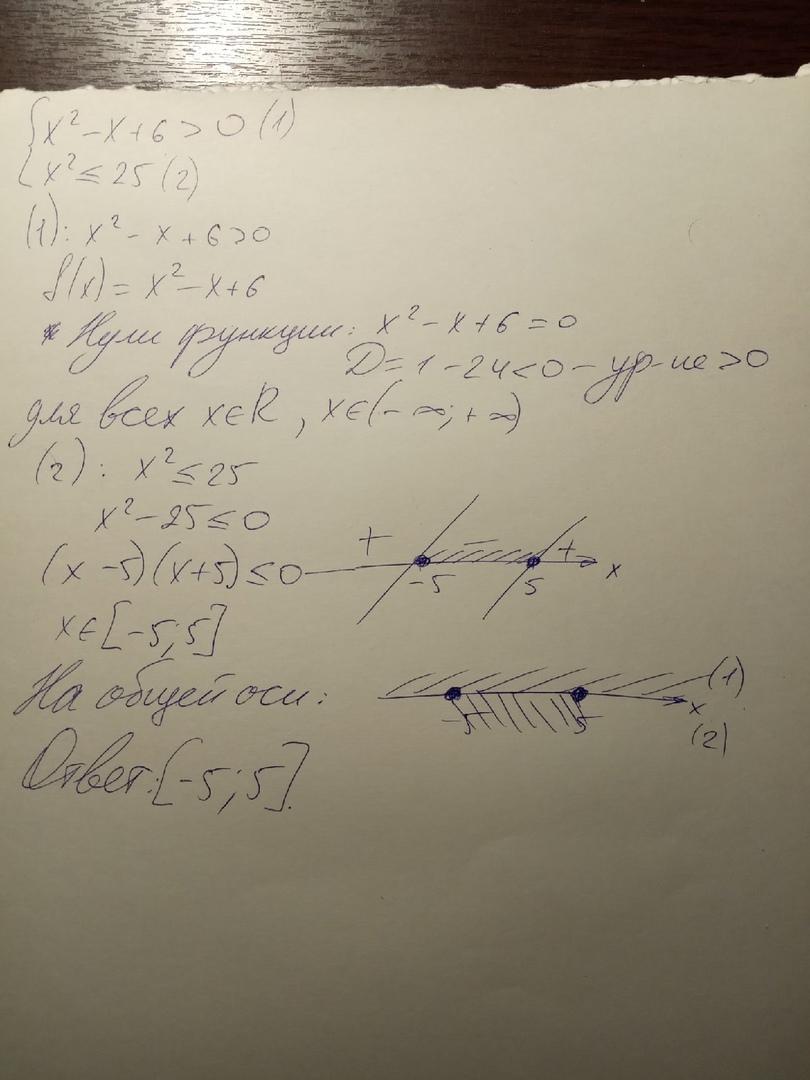 {x² - x + 6 > 0 (1)
{x² ≤ 25 (2)
(1): x² - x + 6 > 0
f(x) = x² - x + 6
* Нули функции: x² - x + 6 = 0
D = 1 - 24 < 0 - ур-ие > 0
для всех x ∈ R, x ∈ (-∞; +∞)
(2): x² ≤ 25
x² - 25 ≤ 0
(x - 5)(x + 5) ≤ 0
+ - + x
-5 5
x ∈ [-5; 5]
На общей оси: (1)
-5 5 x
(2)
Ответ: [-5; 5].